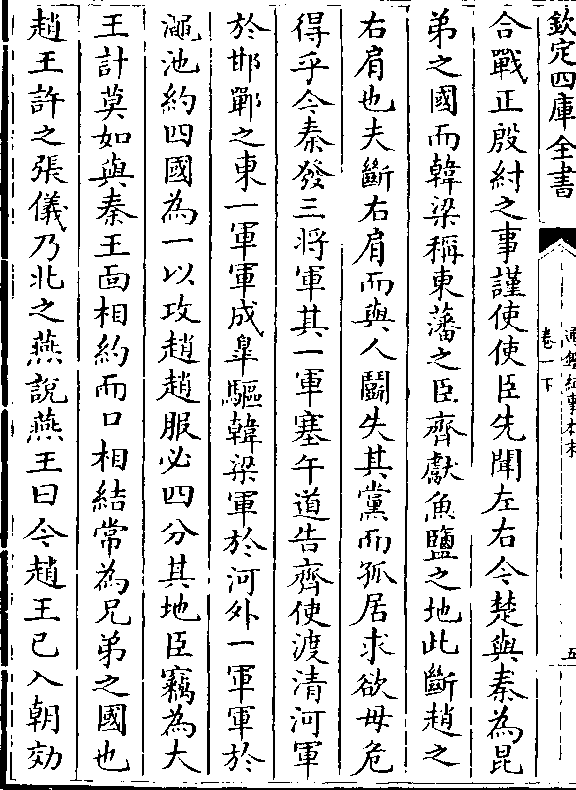 欽定四庫全書
通鑑紀事本末
卷一下
五
合戰正殷紂之事謹使使臣先聞左右今楚與秦為昆
弟之國而韓梁稱東藩之臣齊獻魚鹽之地此斷趙之
右肩也夫斷右肩而與人鬭失其黨而孤居求欲毋危
得乎今秦發三將軍其一軍塞午道告齊使渡清河軍
於邯鄲之東一軍軍成臯驅韓梁軍於河外一軍軍於
澠池約四國為一以攻趙趙服必四分其地臣竊為大
王計莫如與秦王面相約而口相結常為兄弟之國也
趙王許之張儀乃北之燕說燕王曰今趙王已入朝効